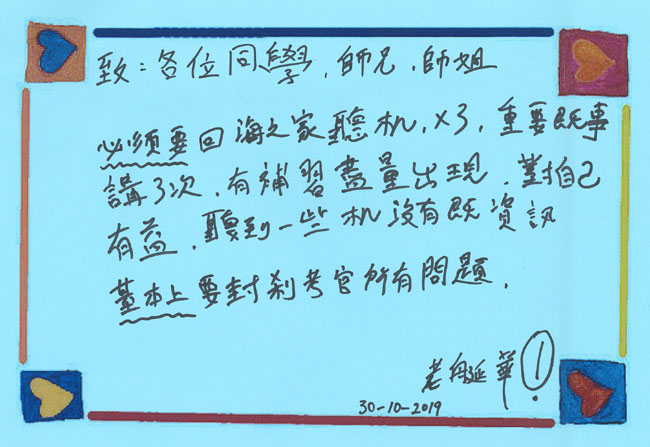 致：各位同學，師兄，師姐
必須要回海之家聽机，x3，重要既事
講3次，有補習盡量出現，對自己
有益，聽到一些机沒有既資訊
基本上要封刹考官所有問題，
老舟延華！
30-10-2019